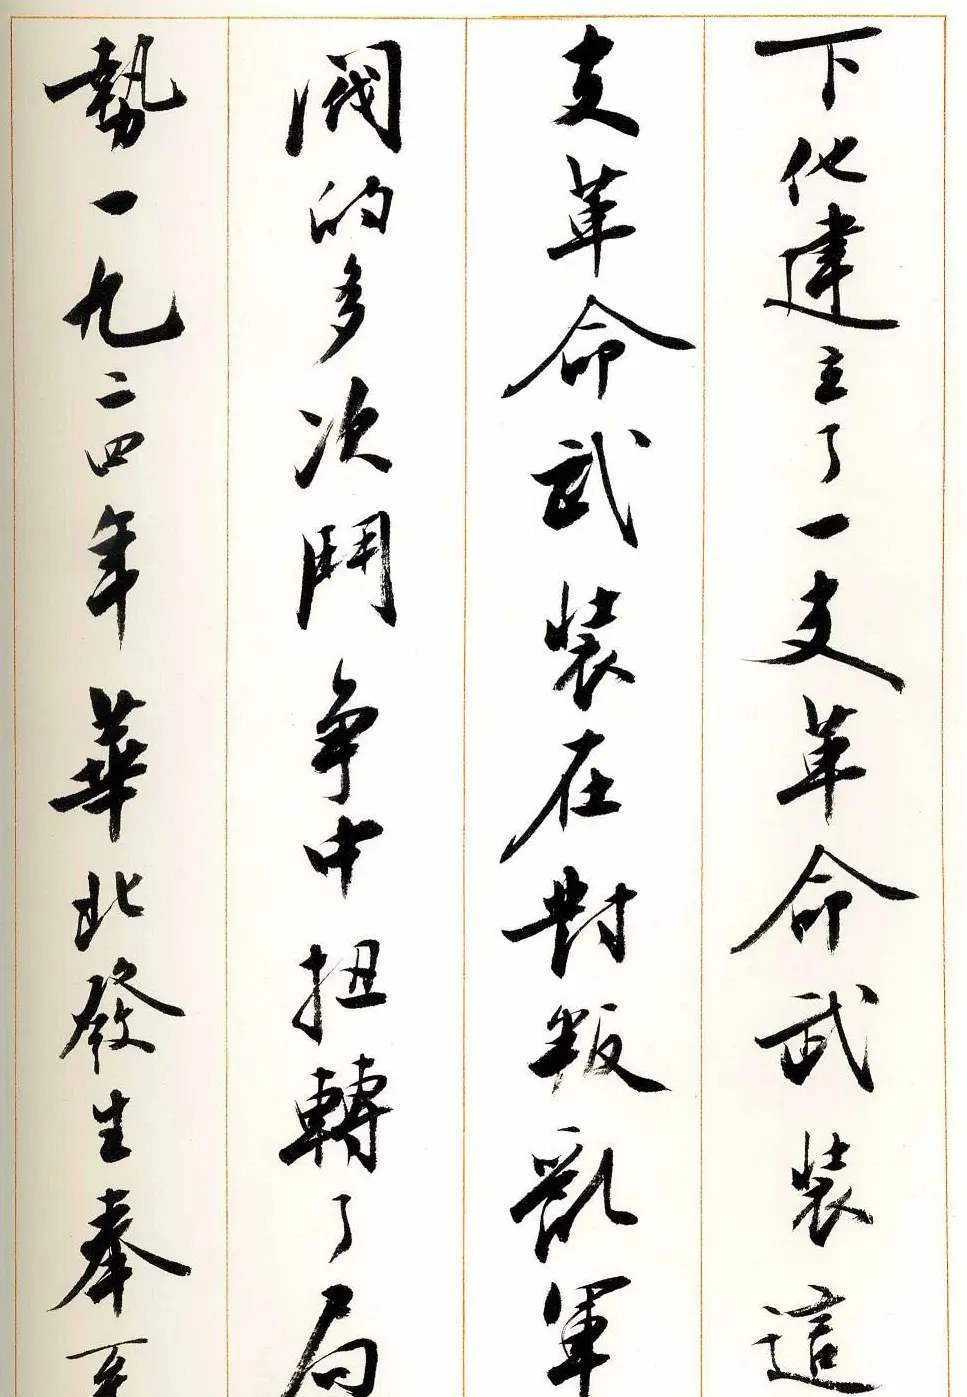 下他建立了一支革命武装這
支革命武装在對叛亂軍
閥的多次鬥争中扭轉了局
勢一九二四年華北發生奉